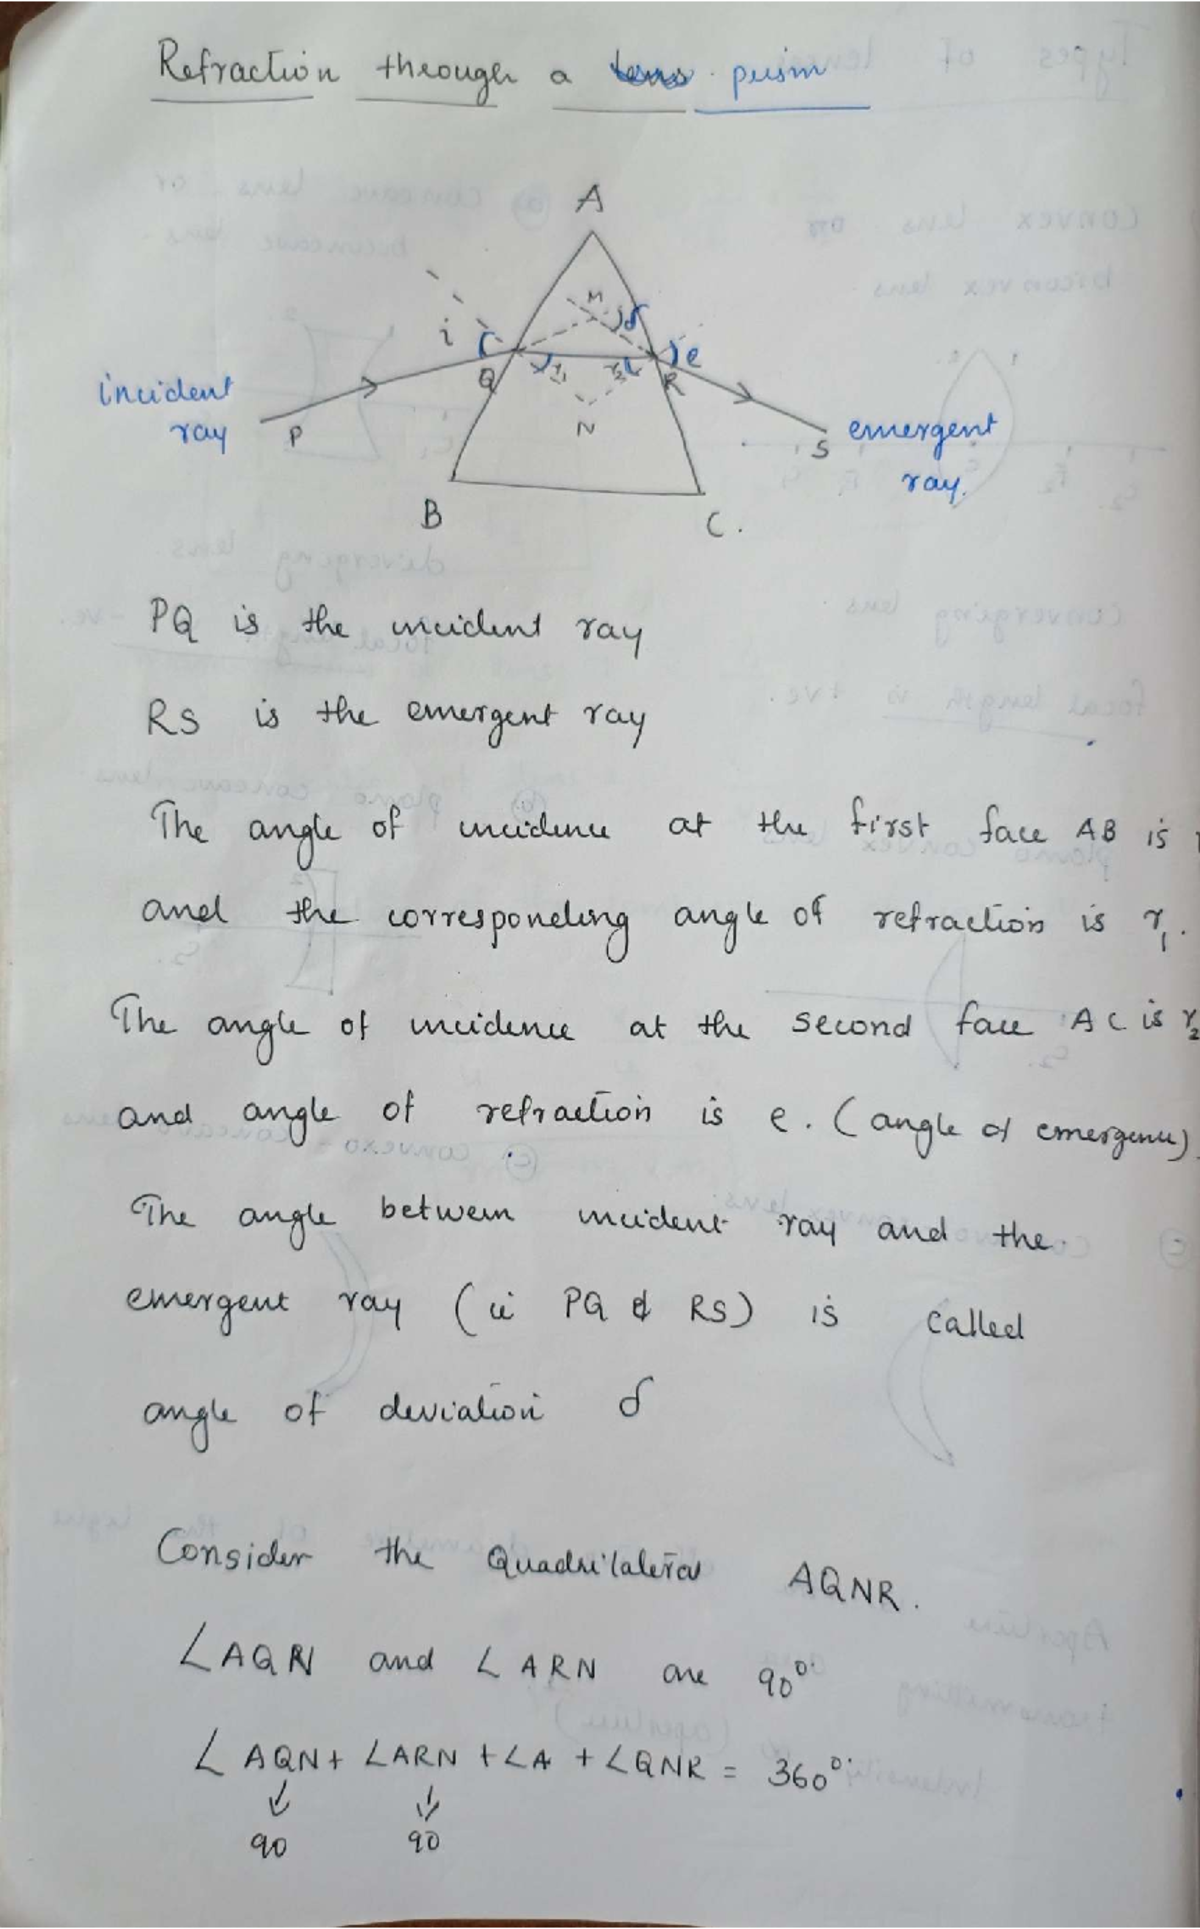 Refraction through a prism
A
M
δ
i
e
Q
r₁
r₂
R
incident
ray
P
N
S
emergent
ray.
B
C.
PQ is the incident ray
RS is the emergent ray
The angle of incidence at the first face AB is i
and the corresponding angle of refraction is r₁.
The angle of incidence at the second face AC is r₂
and angle of refraction is e. (angle of emergence).
The angle between incident ray and the
emergent ray (ie PQ & RS) is called
angle of deviation δ
Consider the Quadrilateral AQNR.
∠AQN and ∠ARN are 90°
∠AQN + ∠ARN + ∠A + ∠QNR = 360°
↓ ↓
90 90